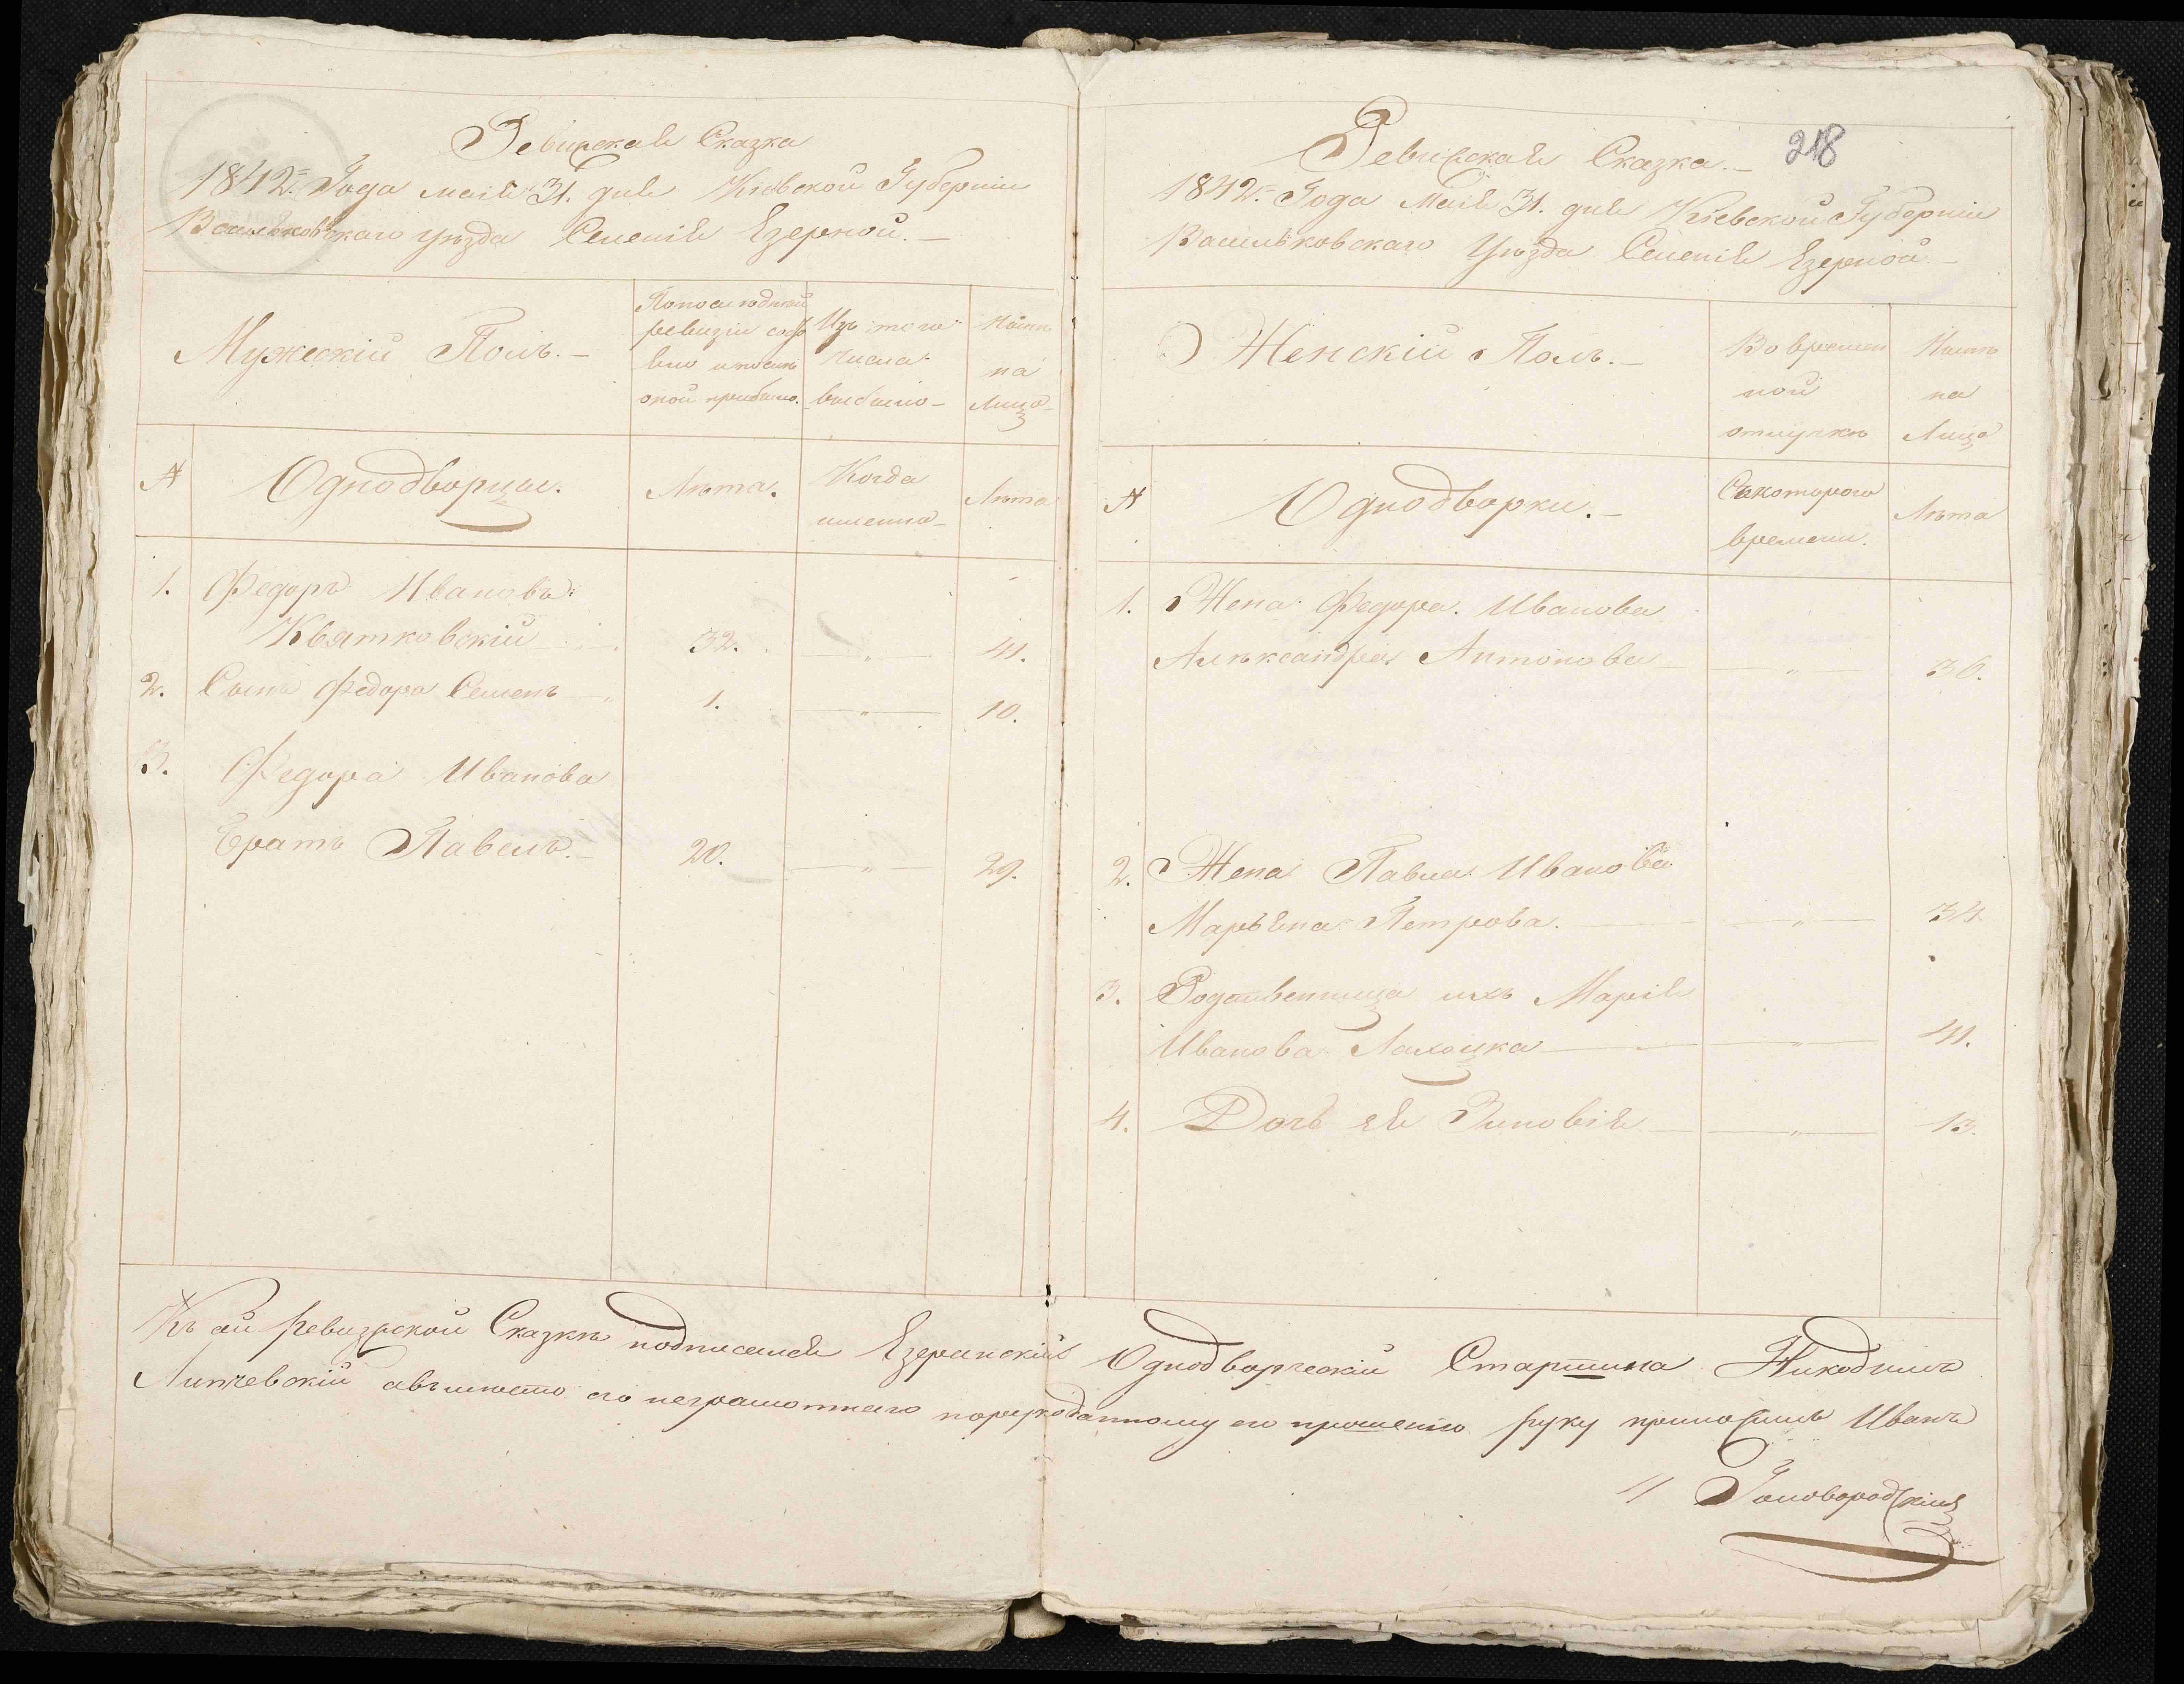 Ревизская Сказка
1842 = Года маія 31. дня Кіевской Губерніи
Васильковскаго уѣзда Селенія Езерной. —
Мужескій Полъ. —
По последней ревизіи состояло и после оной прибыло.
Изъ того числа выбыло —
Нынѣ на Лицо —
№
Однодворцы.
Лѣта.
Когда именно —
Лѣта
1. Федоръ Ивановъ
Квятковскій 32. — „ — 41.
2. Сынъ Федора Семенъ — „ 1. — „ — 10.
3. Федора Иванова
братъ Павелъ. — 20. — „ — 29.
218
Ревизская Сказка. —
1842 = Года Маія 31. дня Кіевской Губерніи
Васильковскаго Уѣзда Селенія Езерной —
Женскій Полъ. —
Во времен
ной
отлучкѣ
Нынѣ
на
Лицо
№
Однодворки. —
Съ котораго
времени.
Лѣта
1. Жена Федора Иванова
Алѣксандра Антонова — „ — 36.
2. Жена Павла Иванова
Марьяна Петрова. — „ — 34.
3. Родственница ихъ Марія
Иванова — „ — 41.
4. Дочь ея Зиновія — „ — 13.
Къ сей Ревизской Сказкѣ подписался Езерянскій Однодворческій Старшина Никодимъ
авъместо его неграмотнаго порукоданному его прошенію руку приложилъ Иванъ